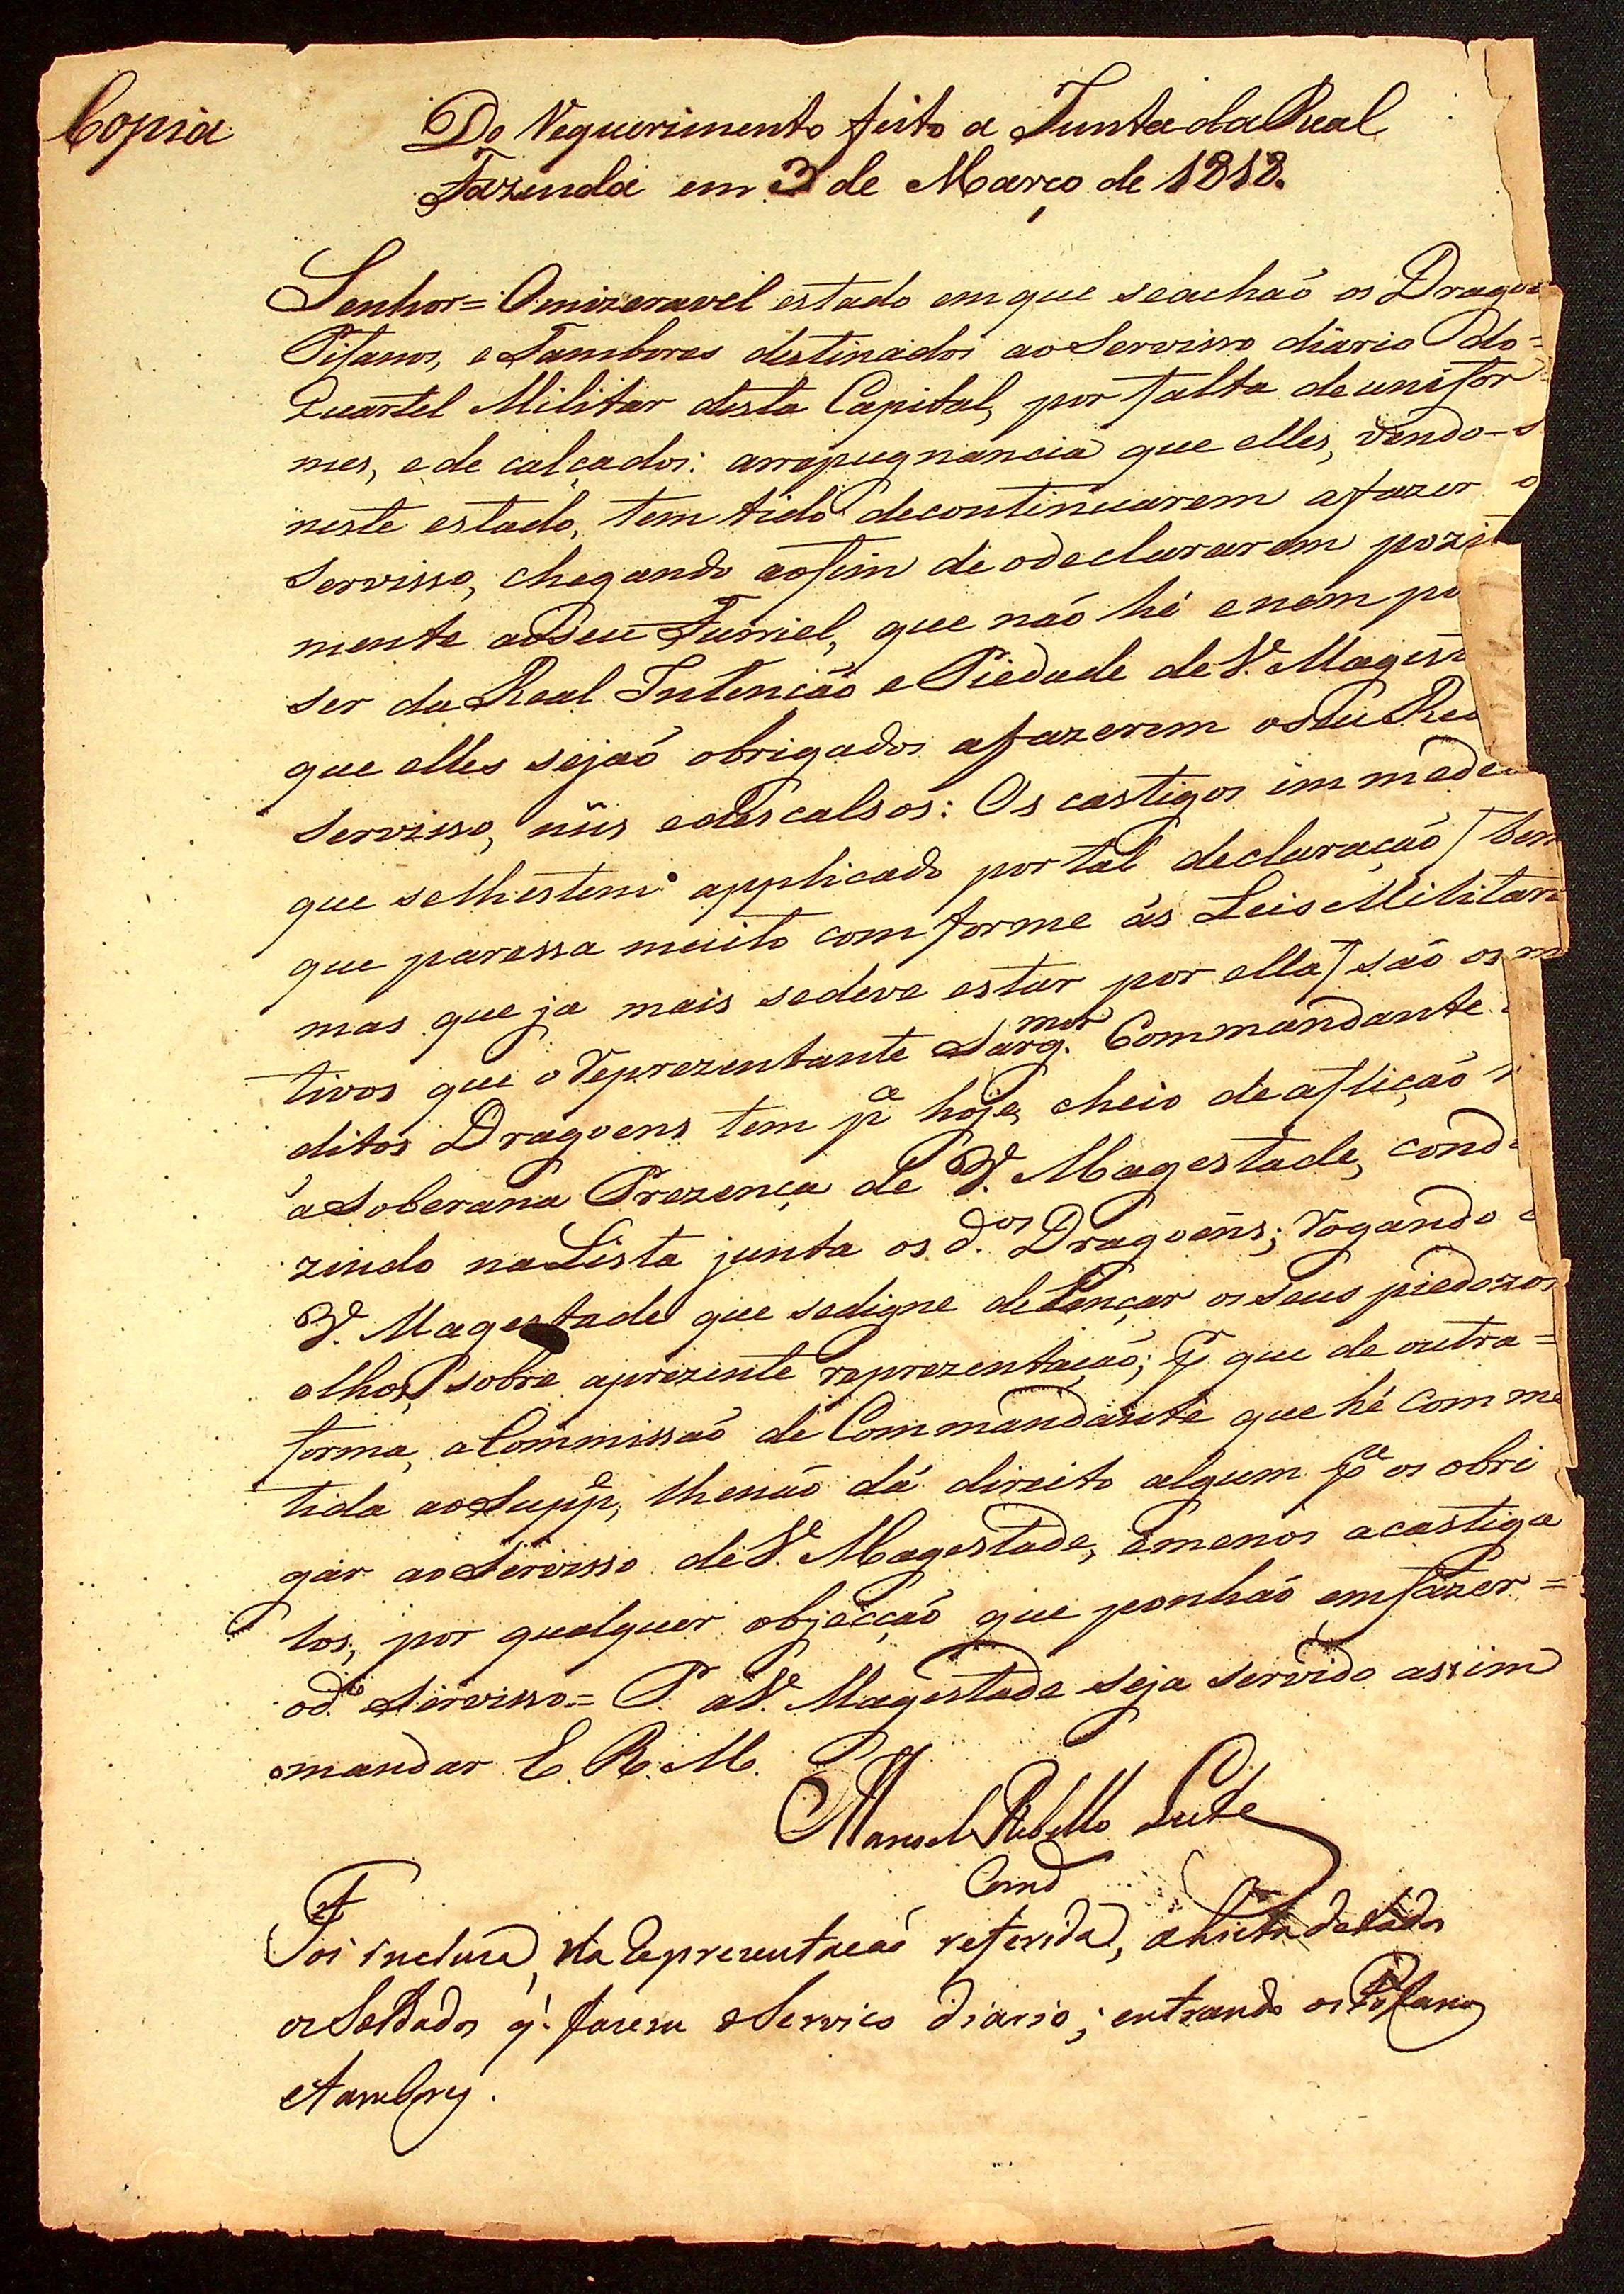 Copia
Do Requerimento feito a Junta da Real
Fazenda em 3 de Março de 1818.
Senhor = O mizeravel estado em que se achaõ os Drago
Pifanos, e Tambores distinados ao Servisso diario do =
Quartel Militar desta Capital, por falta de unifor
mes, e de calçados: arrepugnancia que elles, vendo-s
neste estado, tem tido de continuarem a fazer o
Servisso, chegando ao fim de o declararem pozit
mente ao seu Furriel, que naõ hé e nem po
ser da Real Intenciaõ e Piedade de V. Magest
que elles sejaõ obrigados a fazerem o seu Rea
Servisso, nüs e descalsos: Os castigos immede
que se lhes tem applicado por tal declaraçaõ / bem
que paressa muito comforme ás Leis Militar
mas que ja mais se deve estar por ella / saõ os m
tivos que o Reprezentante Sarg.mor Commandante
ditos Dragoens tem p.a hoje, cheio de afliçaõ
á Soberana Prezença de V. Magestade, cond
zindo na Lista junta os d.os Dragoens; rogando
V. Magestade que se digne de Lençar os seus piedozos
olhos, sobre a prezente reprezentaçaõ; p.r que de outra =
forma, a Commissaõ de Commandante que hé comme
tida ao Supp.e, lhe naõ dá direito algum p.a os obri
gar ao Servisso de V. Magestade, e menos a castiga
los, por qualquer objecçaõ que ponhaõ em fazer =
o d.o Servisso = P. a V. Magestade seja servido assim
mandar E. R. M.
Manoel Rebello Leite
Comd
Foi inclusa, na Reprezentacaõ referida, a Lista de todos
os Soldados q.' fazem o Servico diario; entrando os Pifanos
e Tambores.